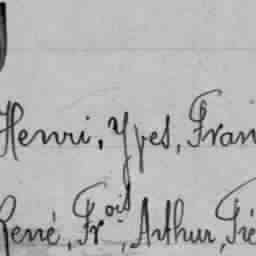 Henri, Yves, Fran
René, Frois, Arthur, Pie